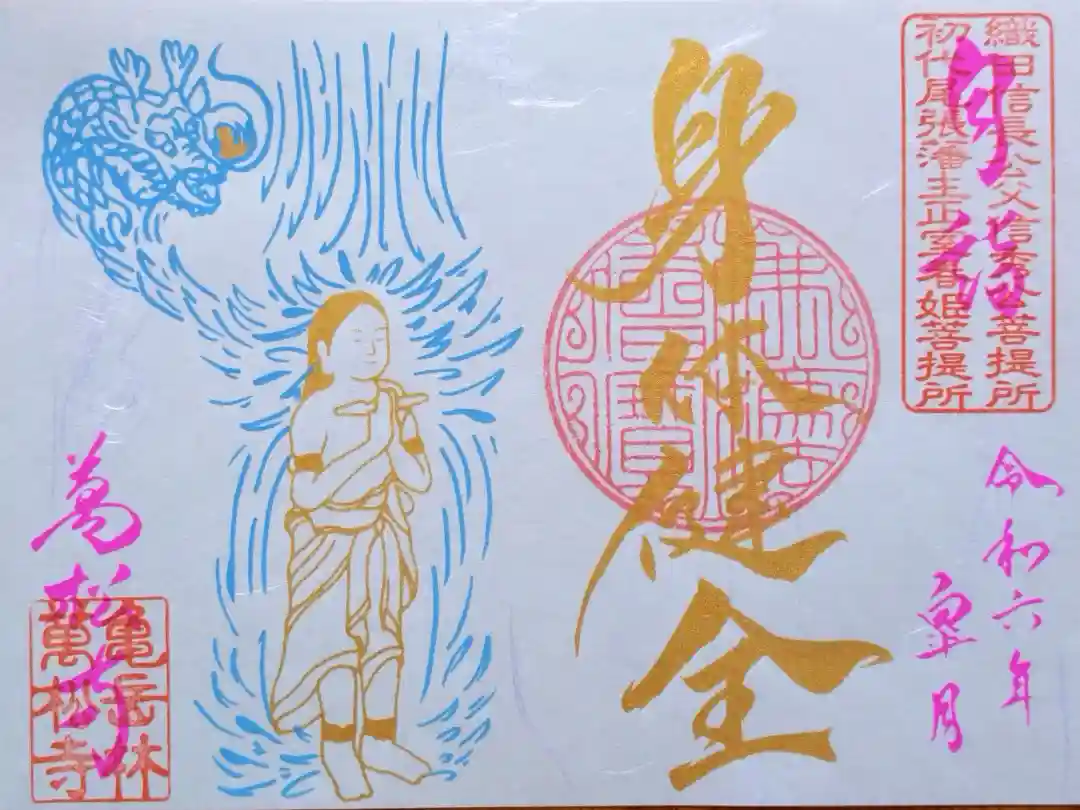 織田信長公父信秀公菩提所
初代尾張藩主正室春姫菩提所
令和六年
皐月
身体健全
萬松寺
亀岳林
萬松寺